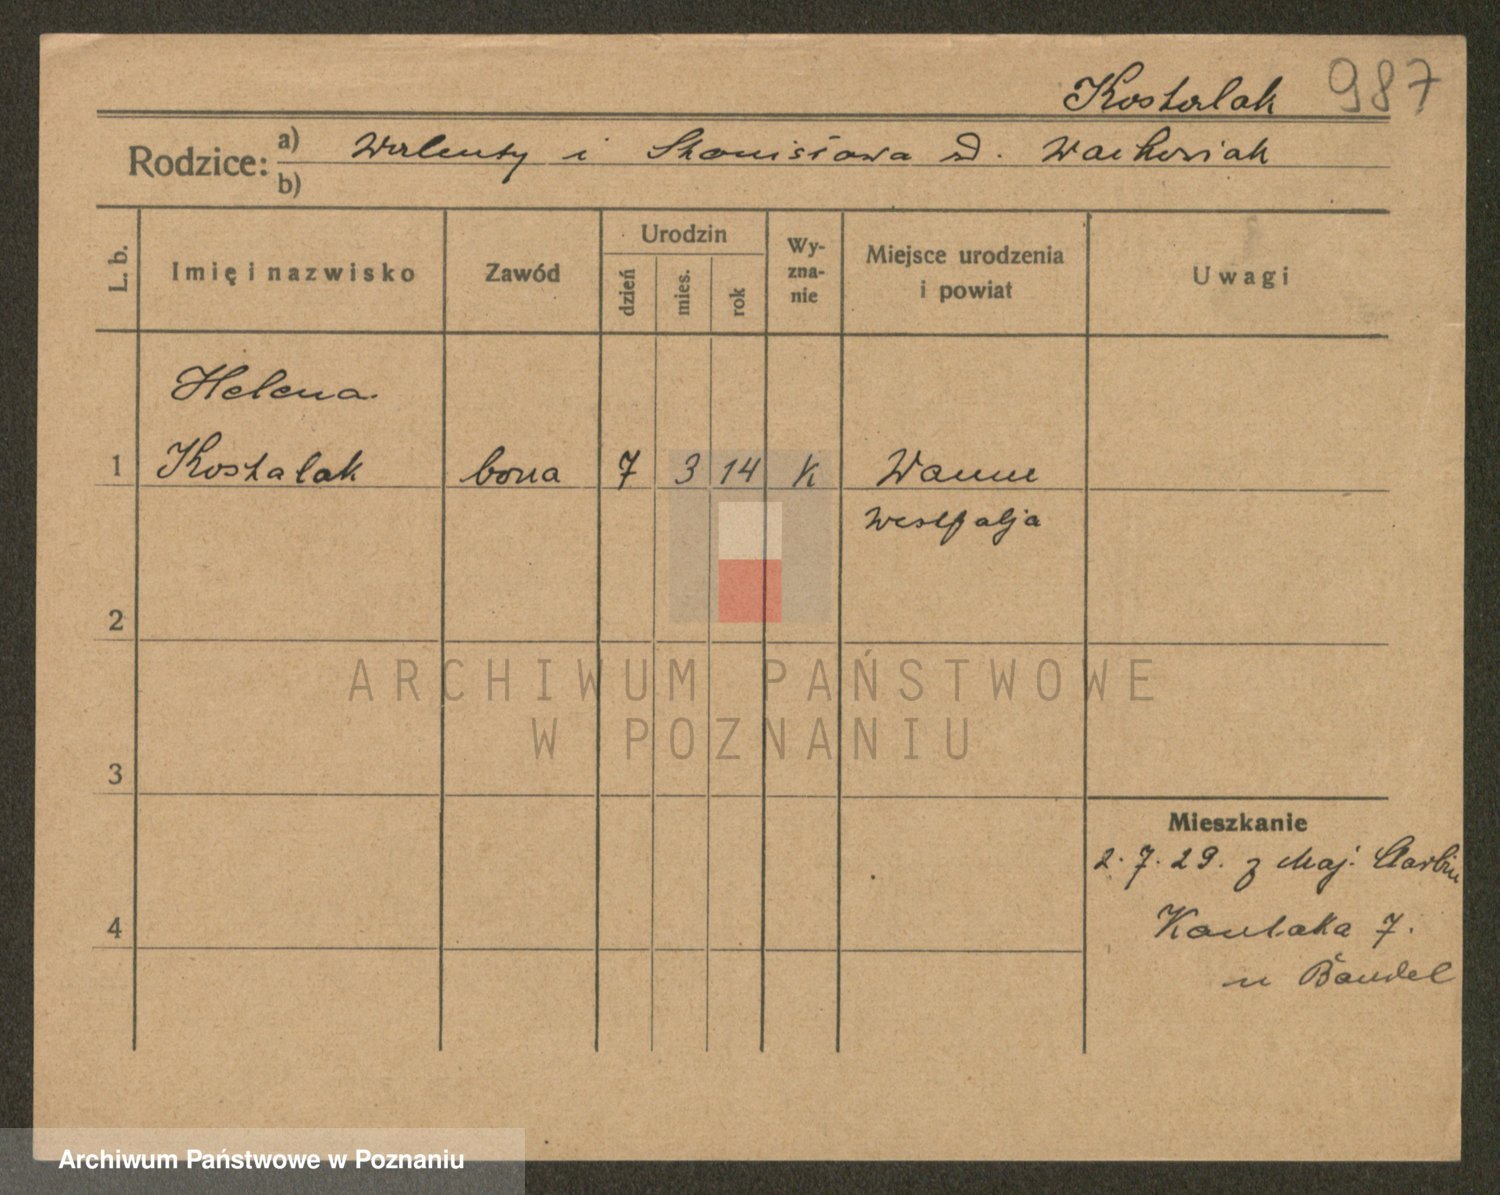 Kostalak 987
Rodzice:
a) Walenty i Stanisława z d. Wachowiak
b)
L. b.
Imię i nazwisko
Zawód
Urodzin
dzień
mies.
rok
Wy-
zna-
nie
Miejsce urodzenia
i powiat
Uwagi
Helena
1 Kostalak bona 7 3 14 K Wanne
Westfalja
2
3
4
ARCHIWUM PAŃSTWOWE
W POZNANIU
Mieszkanie
2.7.29. z Maj.
Kantaka 7.
u Bandel
Archiwum Państwowe w Poznaniu